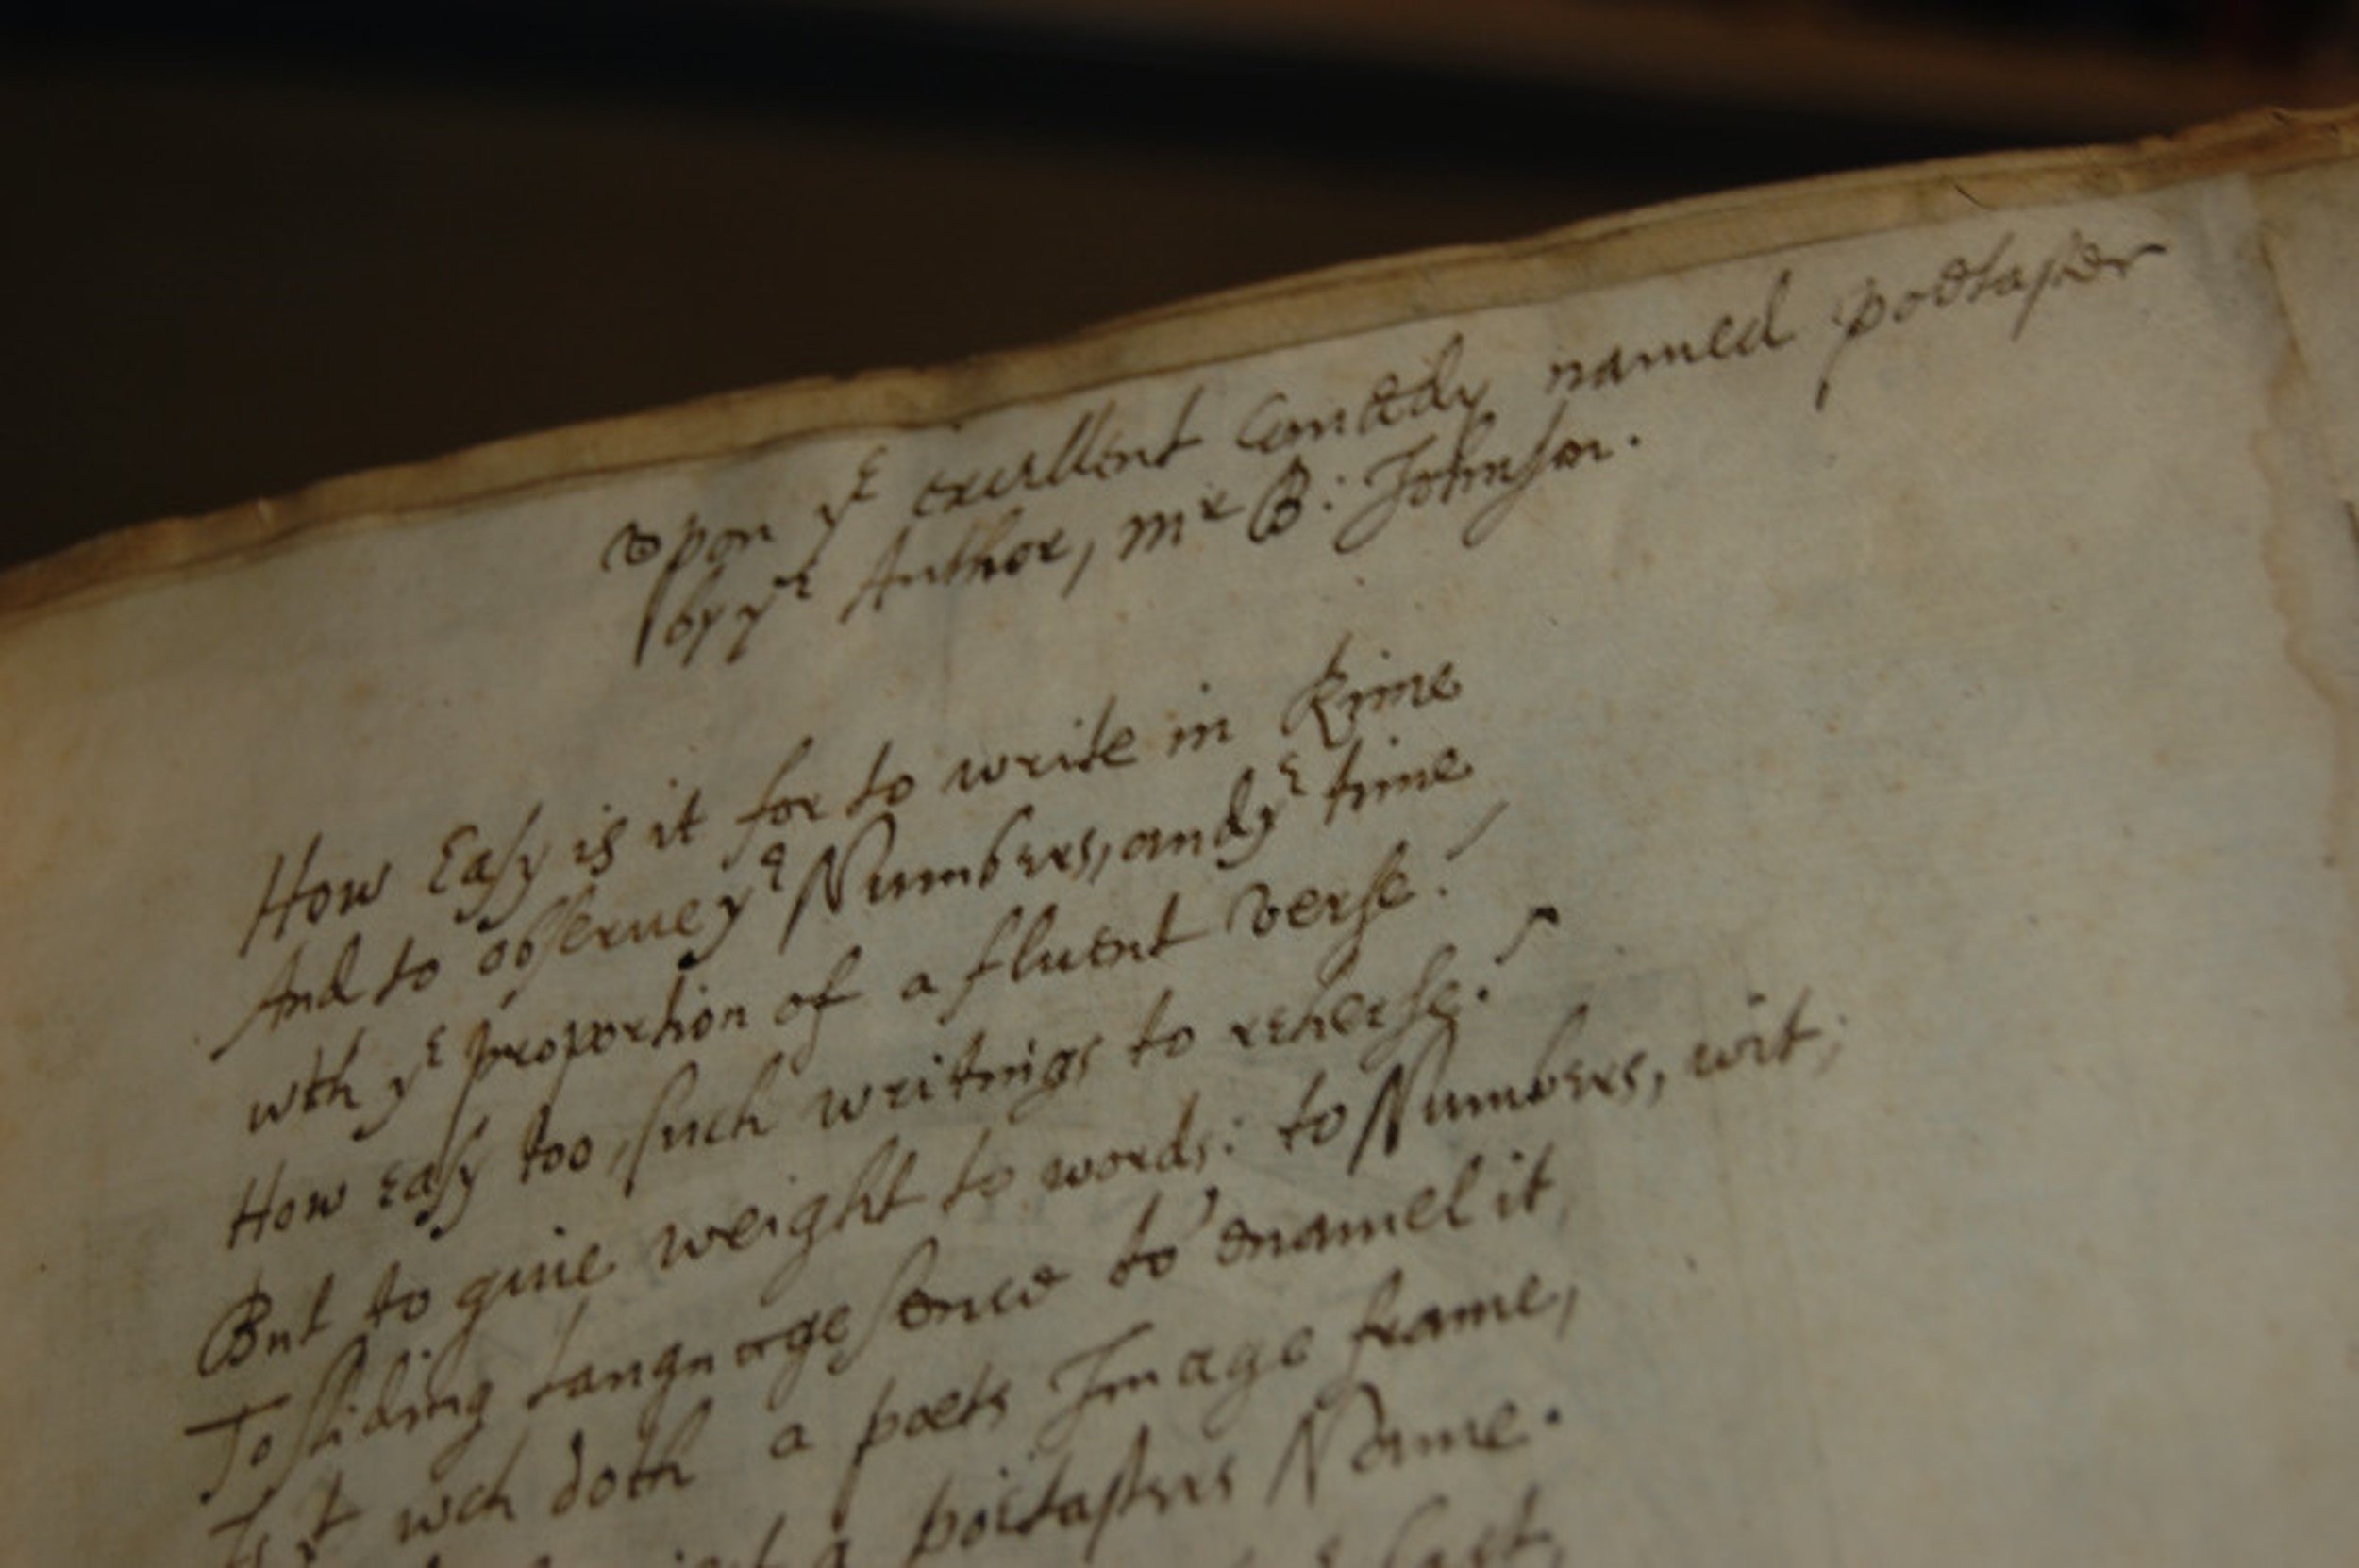 Vpon yͤ excellent Comædy named poetaster
by yͤ Author, mͬ B: Johnson.
How Easy is it for to write in Rime
And to obserue yͤ Numbers, and yͤ time
wth yͤ proportion of a fluent verse!
How easy too, such writings to reherse?
But to giue weight to words: to Numbers, wit;
To sliding language sence to' enamel it,
Is yt wch doth a poets Image frame,
a poetasters Name.